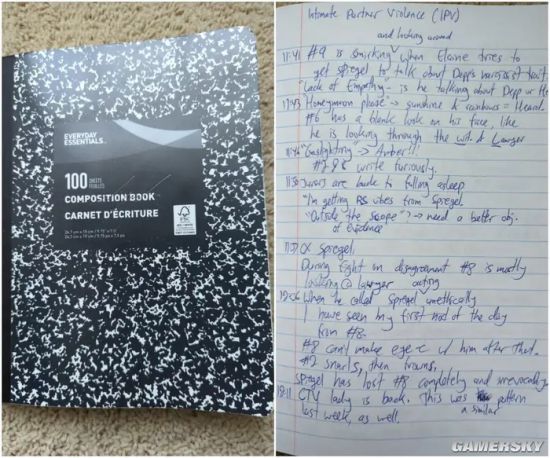 EVERYDAY
ESSENTIALS
100 SHEETS
FEUILLES
COMPOSITION BOOK
CARNET D'ÉCRITURE
FSC
Intimate Partner Violence (IPV)
and looking around
11:41 #9 is smirking when Elaine tries to
get Spiegel to talk about Depp's narcissist trait
"Lack of Empathy" - is he talking about Depp or He
Honeymoon phase → sunshine & rainbows = Heard.
#6 has a blank look on his face, like
he is looking through the wit. & lawyer
11:46 "Gaslighting" → Amber!!
write furiously.
11:50 Jurors are back to falling asleep.
"I'm getting BS vibes from Spiegel.
"Outside the scope" → need a better obj.
of evidence
Spiegel.
During fight on disagreement #8 is mostly
looking @ lawyer
When he called Spiegel acting unethically
I have seen my first nod of the day
from #8.
#8 can't make eye c w/ him after that.
snarls, then frowns.
Spiegel has lost #8 completely and irrevocably
CTV lady is back. This was a similar pattern
last week, as well.
GAMERSKY